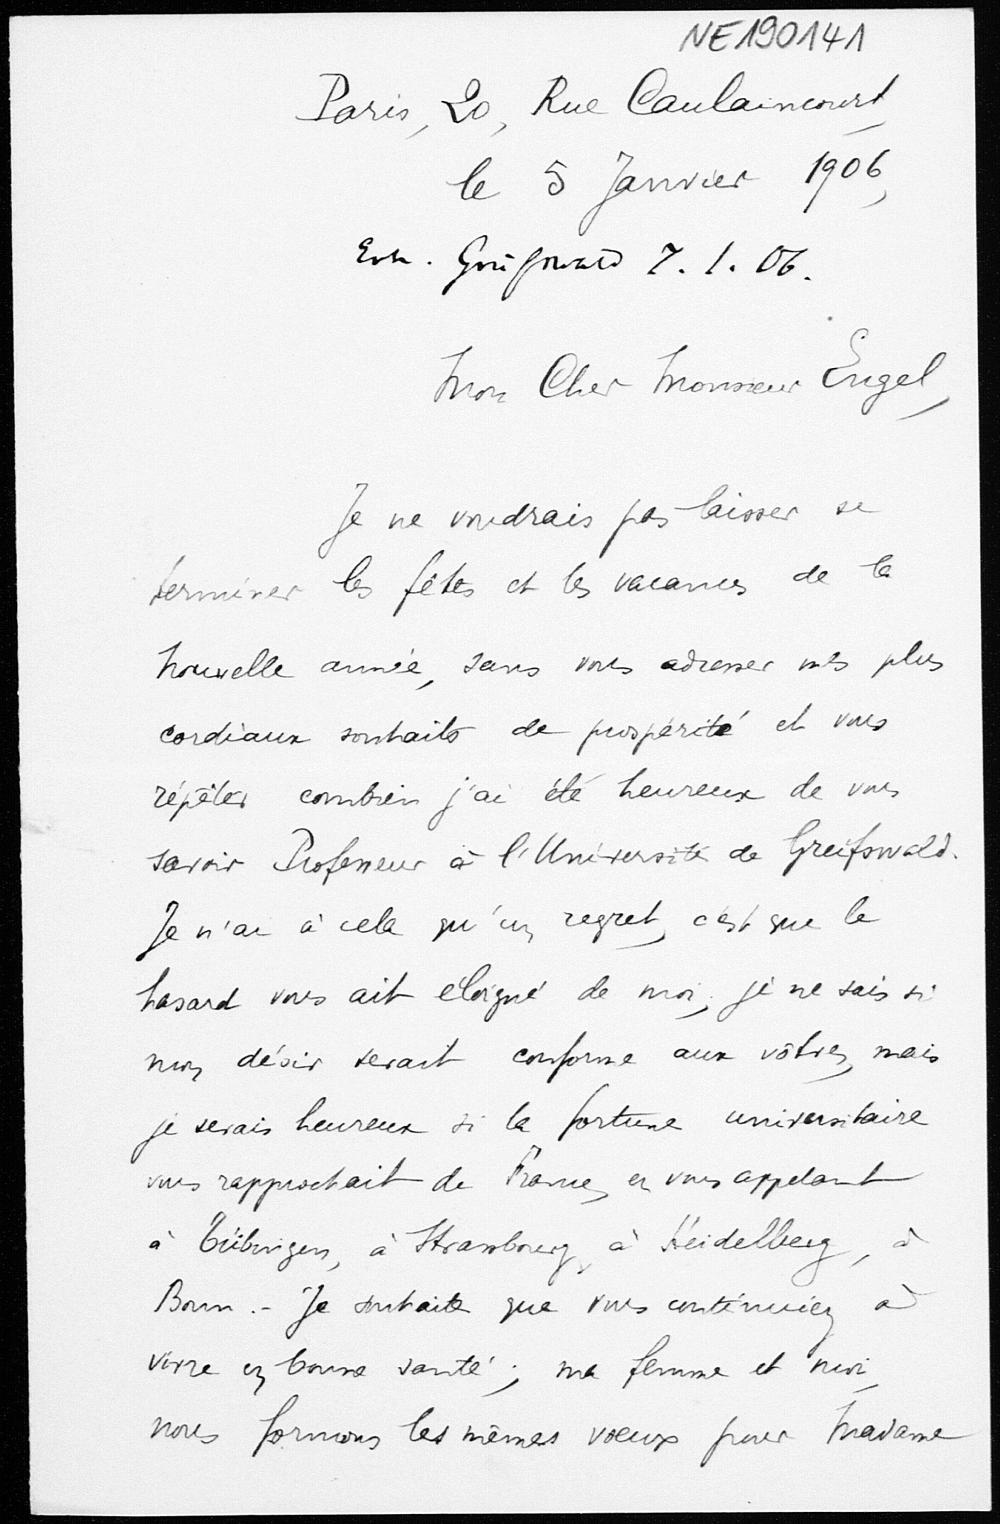 NE190141
Paris, 20, Rue Caulaincourt,
le 5 Janvier 1906,
Greifswald 7. 1. 06.
Mon Cher Monsieur Engel,
Je ne voudrais pas laisser se
terminer les fêtes et les vacances de la
nouvelle année, sans vous adresser mes plus
cordiaux souhaits de prospérité et vous
répéter combien j'ai été heureux de vous
savoir Professeur à l'Université de Greifswald.
Je n'ai à cela qu'un regret, c'est que le
hasard vous ait éloigné de moi; je ne sais si
mon désir serait conforme aux vôtres, mais
je serais heureux si la fortune universitaire
vous rapprochait de France, en vous appelant
à Tübingen, à Strasbourg, à Heidelberg, à
Bonn. - Je souhaite que vous continuiez à
vivre en bonne santé; ma femme et moi,
nous formons les mêmes voeux pour Madame